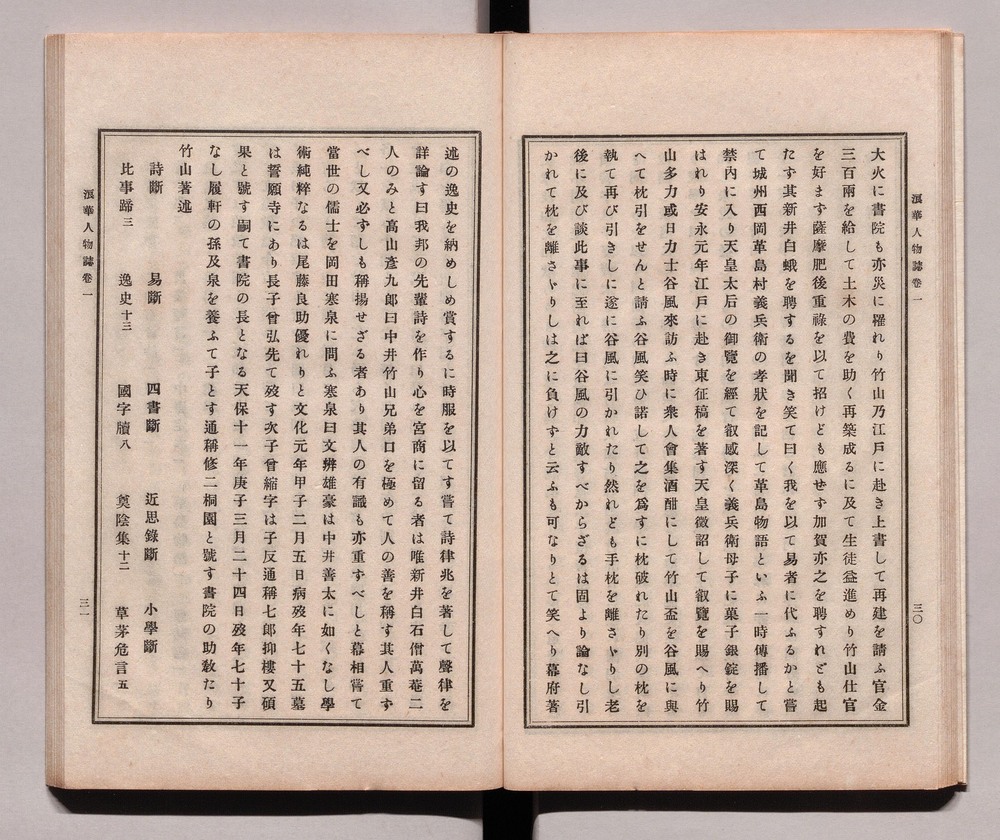 浪華人物誌卷一
大火に書院も亦災に罹れり竹山乃江戸に赴き上書して再建を請ふ官金
三百兩を給して土木の費を助く再築成るに及て生徒益進めり竹山仕官
を好ます薩摩肥後重祿を以て招けども應せす加賀亦之を聘すれども起
たす其新井白蛾を聘するを聞き笑て曰く我を以て易者に代ふるかと嘗
て城州西岡革島村義兵衛の孝狀を記して革島物語といふ一時傳播して
禁內に入り天皇太后の御覽を經て叡感深く義兵衛母子に菓子銀錠を賜
はれり安永元年江戸に赴き東征稿を著す天皇徵詔して叡覽を賜へり竹
山多力或日力士谷風來訪ふ時に衆人會集酒酣にして竹山盃を谷風に與
へて枕引をせんと請ふ谷風笑ひ諾して之を爲すに枕破れたり別の枕を
執て再び引きしに遂に谷風に引かれたり然れども手枕を離さゝりし老
後に及び談此事に至れば曰谷風の力敵すべからざるは固より論なし引
かれて枕を離さゝりしは之に負けすと云ふも可なりとて笑へり幕府著
三〇
述の逸史を納めしめ賞するに時服を以てす嘗て詩律兆を著して聲律を
詳論す曰我邦の先輩詩を作り心を宮商に留る者は唯新井白石僧萬菴二
人のみと高山彥九郎曰中井竹山兄弟口を極めて人の善を稱す其人重す
べし又必ずしも稱揚せざる者あり其人の有識も亦重ずべしと幕相嘗て
當世の儒士を岡田寒泉に問ふ寒泉曰文辨雄豪は中井善太に如くなし學
術純粹なるは尾藤良助優れりと文化元年甲子二月五日病歿年七十五墓
は誓願寺にあり長子曾弘先て歿す次子曾縮字は子反通稱七郎抑樓又碩
果と號す嗣て書院の長となる天保十一年庚子三月二十四日歿年七十子
なし履軒の孫及泉を養ふて子とす通稱修二桐園と號す書院の助敎たり
竹山著述
詩斷 易斷 四書斷 近思錄斷 小學斷
比事蹄三 逸史十三 國字牘八 奠陰集十二 草茅危言五
浪華人物誌卷一
三一